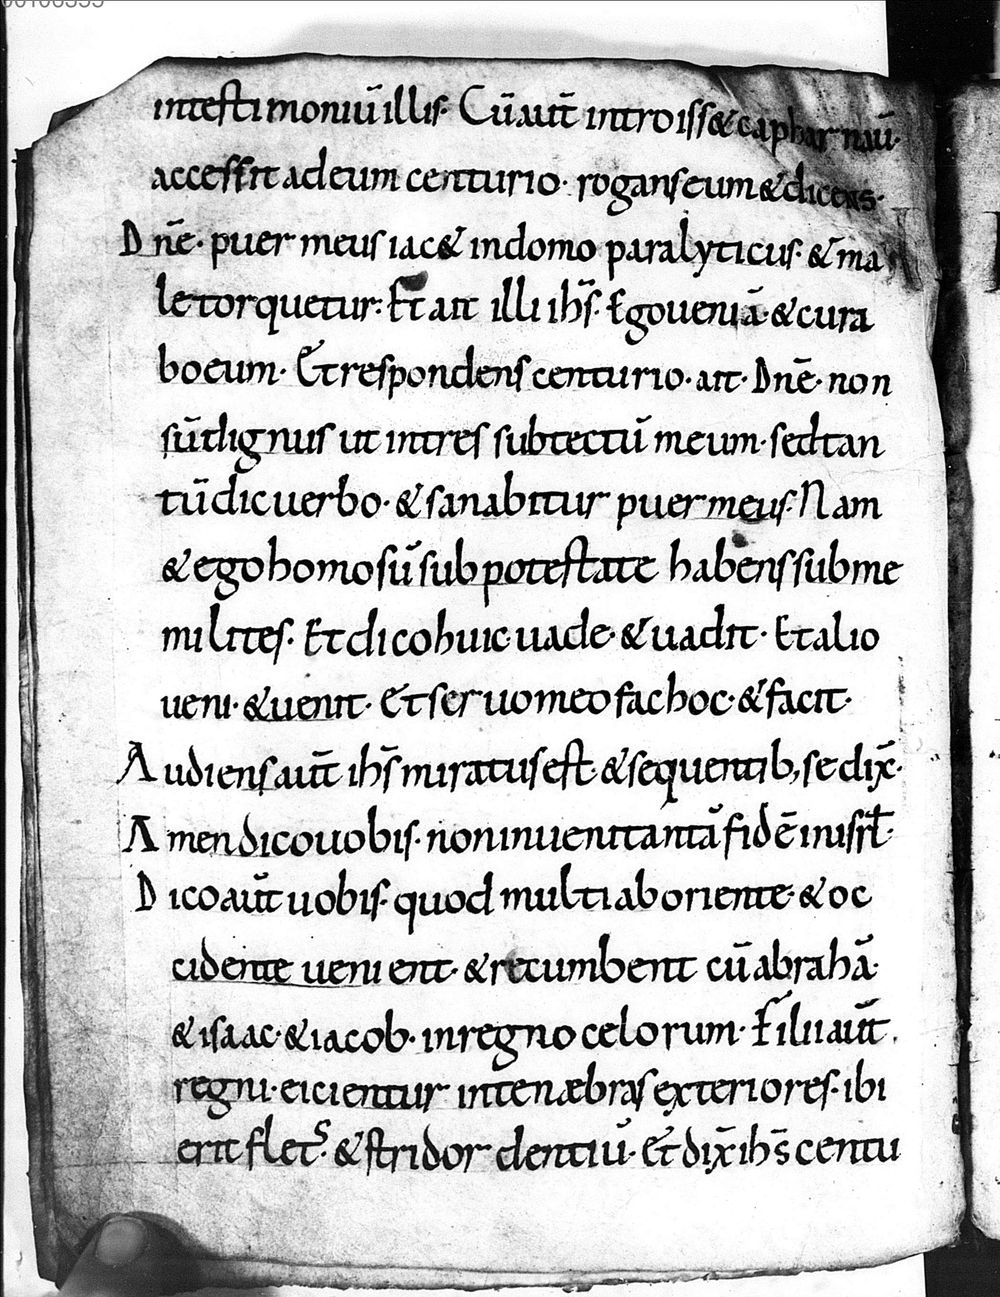 intestimoniū illis· Cū aut̄ introiss& capharnaū·
accessit ad eum centurio· rogans eum & dicens·
Dn̄e· puer meus iac& in domo paralyticus· & ma
le torquetur· Et ait illi ih̄s· Ego ueniā· & cura
bo eum· Et respondens centurio· ait· Dn̄e· non
sū dignus ut intres sub tectū meum· sed tan
tū dic uerbo· & sanabitur puer meus· Nam
& ego homo sū sub potestate habens sub me
milites· Et dico huic uade· & uadit· Et alio
ueni· & uenit· Et seruo meo fac hoc· & facit·
Audiens aut̄ ih̄s miratus est· & sequentib; se dix̄·
Amen dico uobis· non inueni tantā fidē in isrł·
Dico aut̄ uobis· quod multi ab oriente· & oc
cidente uenient· & recumbent cū abrahā·
& isaac· & iacob· in regno celorum· Filii aut̄
regni· eicientur in tenæbras exteriores· ibi
erit flet᷒· & stridor dentiū· Et dix̄ ih̄s centu